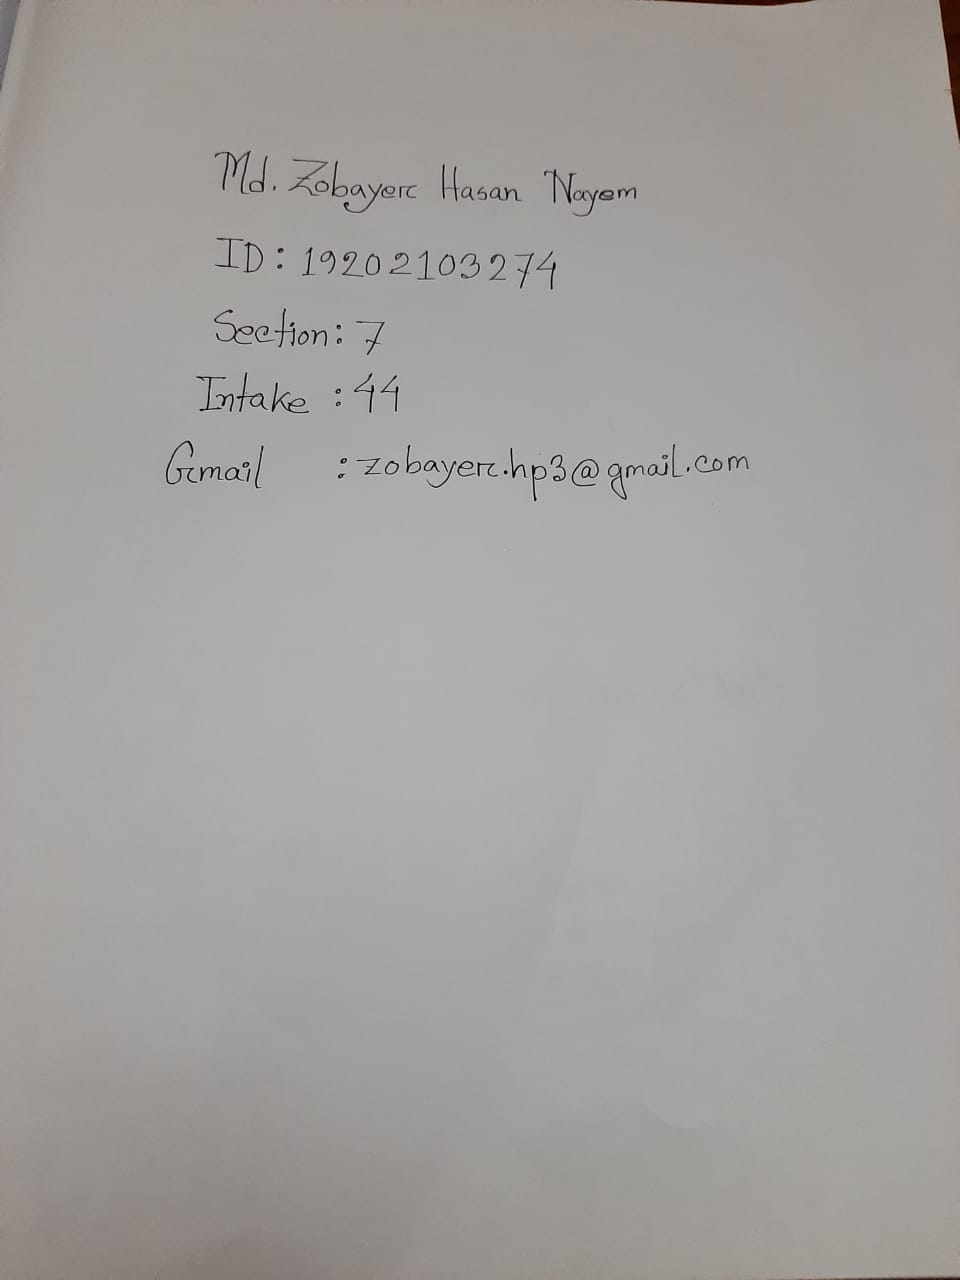 Md. Zobayer Hasan Nayem
ID: 19202103274
Section: 7
Intake : 44
Gmail : zobayer.hp3@gmail.com